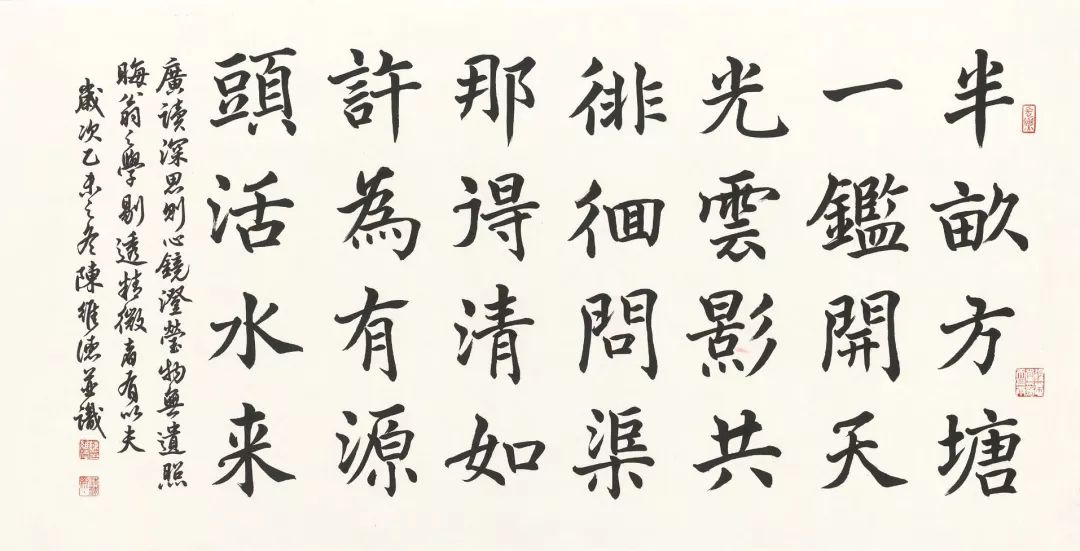 半畝方塘
一鑑開天
光雲影共
徘徊問渠
那得清如
許為有源
頭活水来
廣读深思则心鏡澄瑩物無遺照
晦翁之學剔透精微者有以夫
歲次乙未之冬陳維德並識